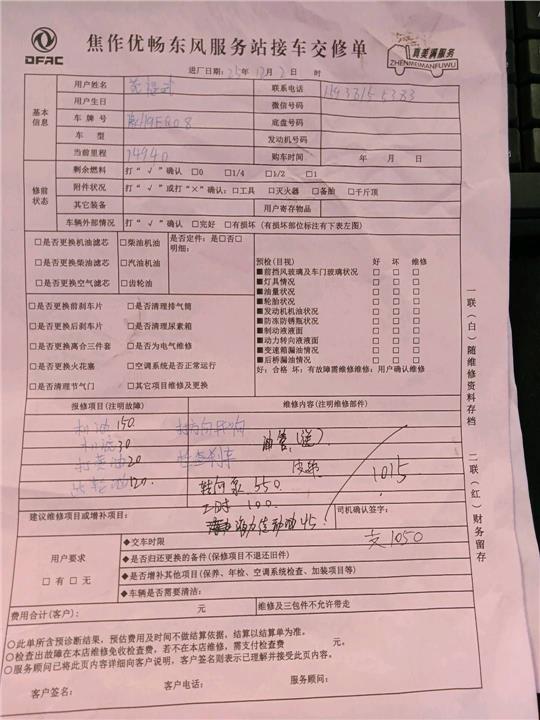 DFAC
焦作优畅东风服务站接车交修单
真美满服务
ZHENMEIMANFUWU
进厂日期: 25年 12月 2日 时
基本信息
用户姓名
联系电话
用户生日
微信号码
车牌号
底盘号码
车型
发动机号码
当前里程 74940
购车时间 年 月 日
修前状态
剩余燃料 打“√”确认 □0 □1/4 □1/2 □1
附件状况 打“√”或打“×”确认: □工具 □灭火器 □备胎 □千斤顶
其它装备
用户寄存物品
车辆外部情况 打“√”确认 □完好 □有损坏 (有损坏部位标注有下表左图)
□是否更换机油滤芯 □柴油机油 是否定件: 是□否□
明细:
□是否更换柴油滤芯 □汽油机油
□是否更换空气滤芯 □齿轮油
预检(目视) 好 坏 维修
■前挡风玻璃及车门玻璃状况 □ □ □
■灯具情况 □ □ □
■油量状况 □ □ □
■轮胎状况 □ □ □
■发动机机油状况 □ □ □
■防冻防锈瓶状况 □ □ □
■制动液液面 □ □ □
■动力转向液液面 □ □ □
■变速箱漏油情况 □ □ □
■后桥漏油情况 □ □ □
好: 合格 坏: 有故障需维修维修: 用户确认维修
□是否更换前刹车片 □是否清理排气筒
□是否更换后刹车片 □是否清理尿素箱
□是否更换离合三件套 □是否为电气维修
□是否更换火花塞 □空调系统是否正常运行
□是否清理节气门 □其它项目维修及更换
报修项目(注明故障)
维修内容(注明维修部件)
机油 150
机滤 30
打黄油 20
齿轮油 120
打方向环响
检查刹车
油管 (送)
皮条
转向泵 550
工时 100
液力传动油 45
1015
建议维修项目或增补项目:
司机确认签字:
支1050
用户要求
□ 有 □ 无
◆交车时限
◆是否归还更换的备件(保修项目不退还旧件)
◆是否增补其他项目(保养、年检、空调系统检查、加装项目等)
◆车辆是否需要清洁:
费用合计(客户): 元
维修及三包件不允许带走
○此单所含预诊断结果, 预估费用及时间不做结算依据, 结算以结算单为准。
○检查出故障在本店维修免收检查费, 若不在本店维修, 需支付检查费 元。
○服务顾问已将此页内容详细向客户说明, 客户签名则表示已理解并接受此页内容。
客户签名: 客户电话: 服务顾问:
一联(白)随维修资料存档
二联(红)财务留存